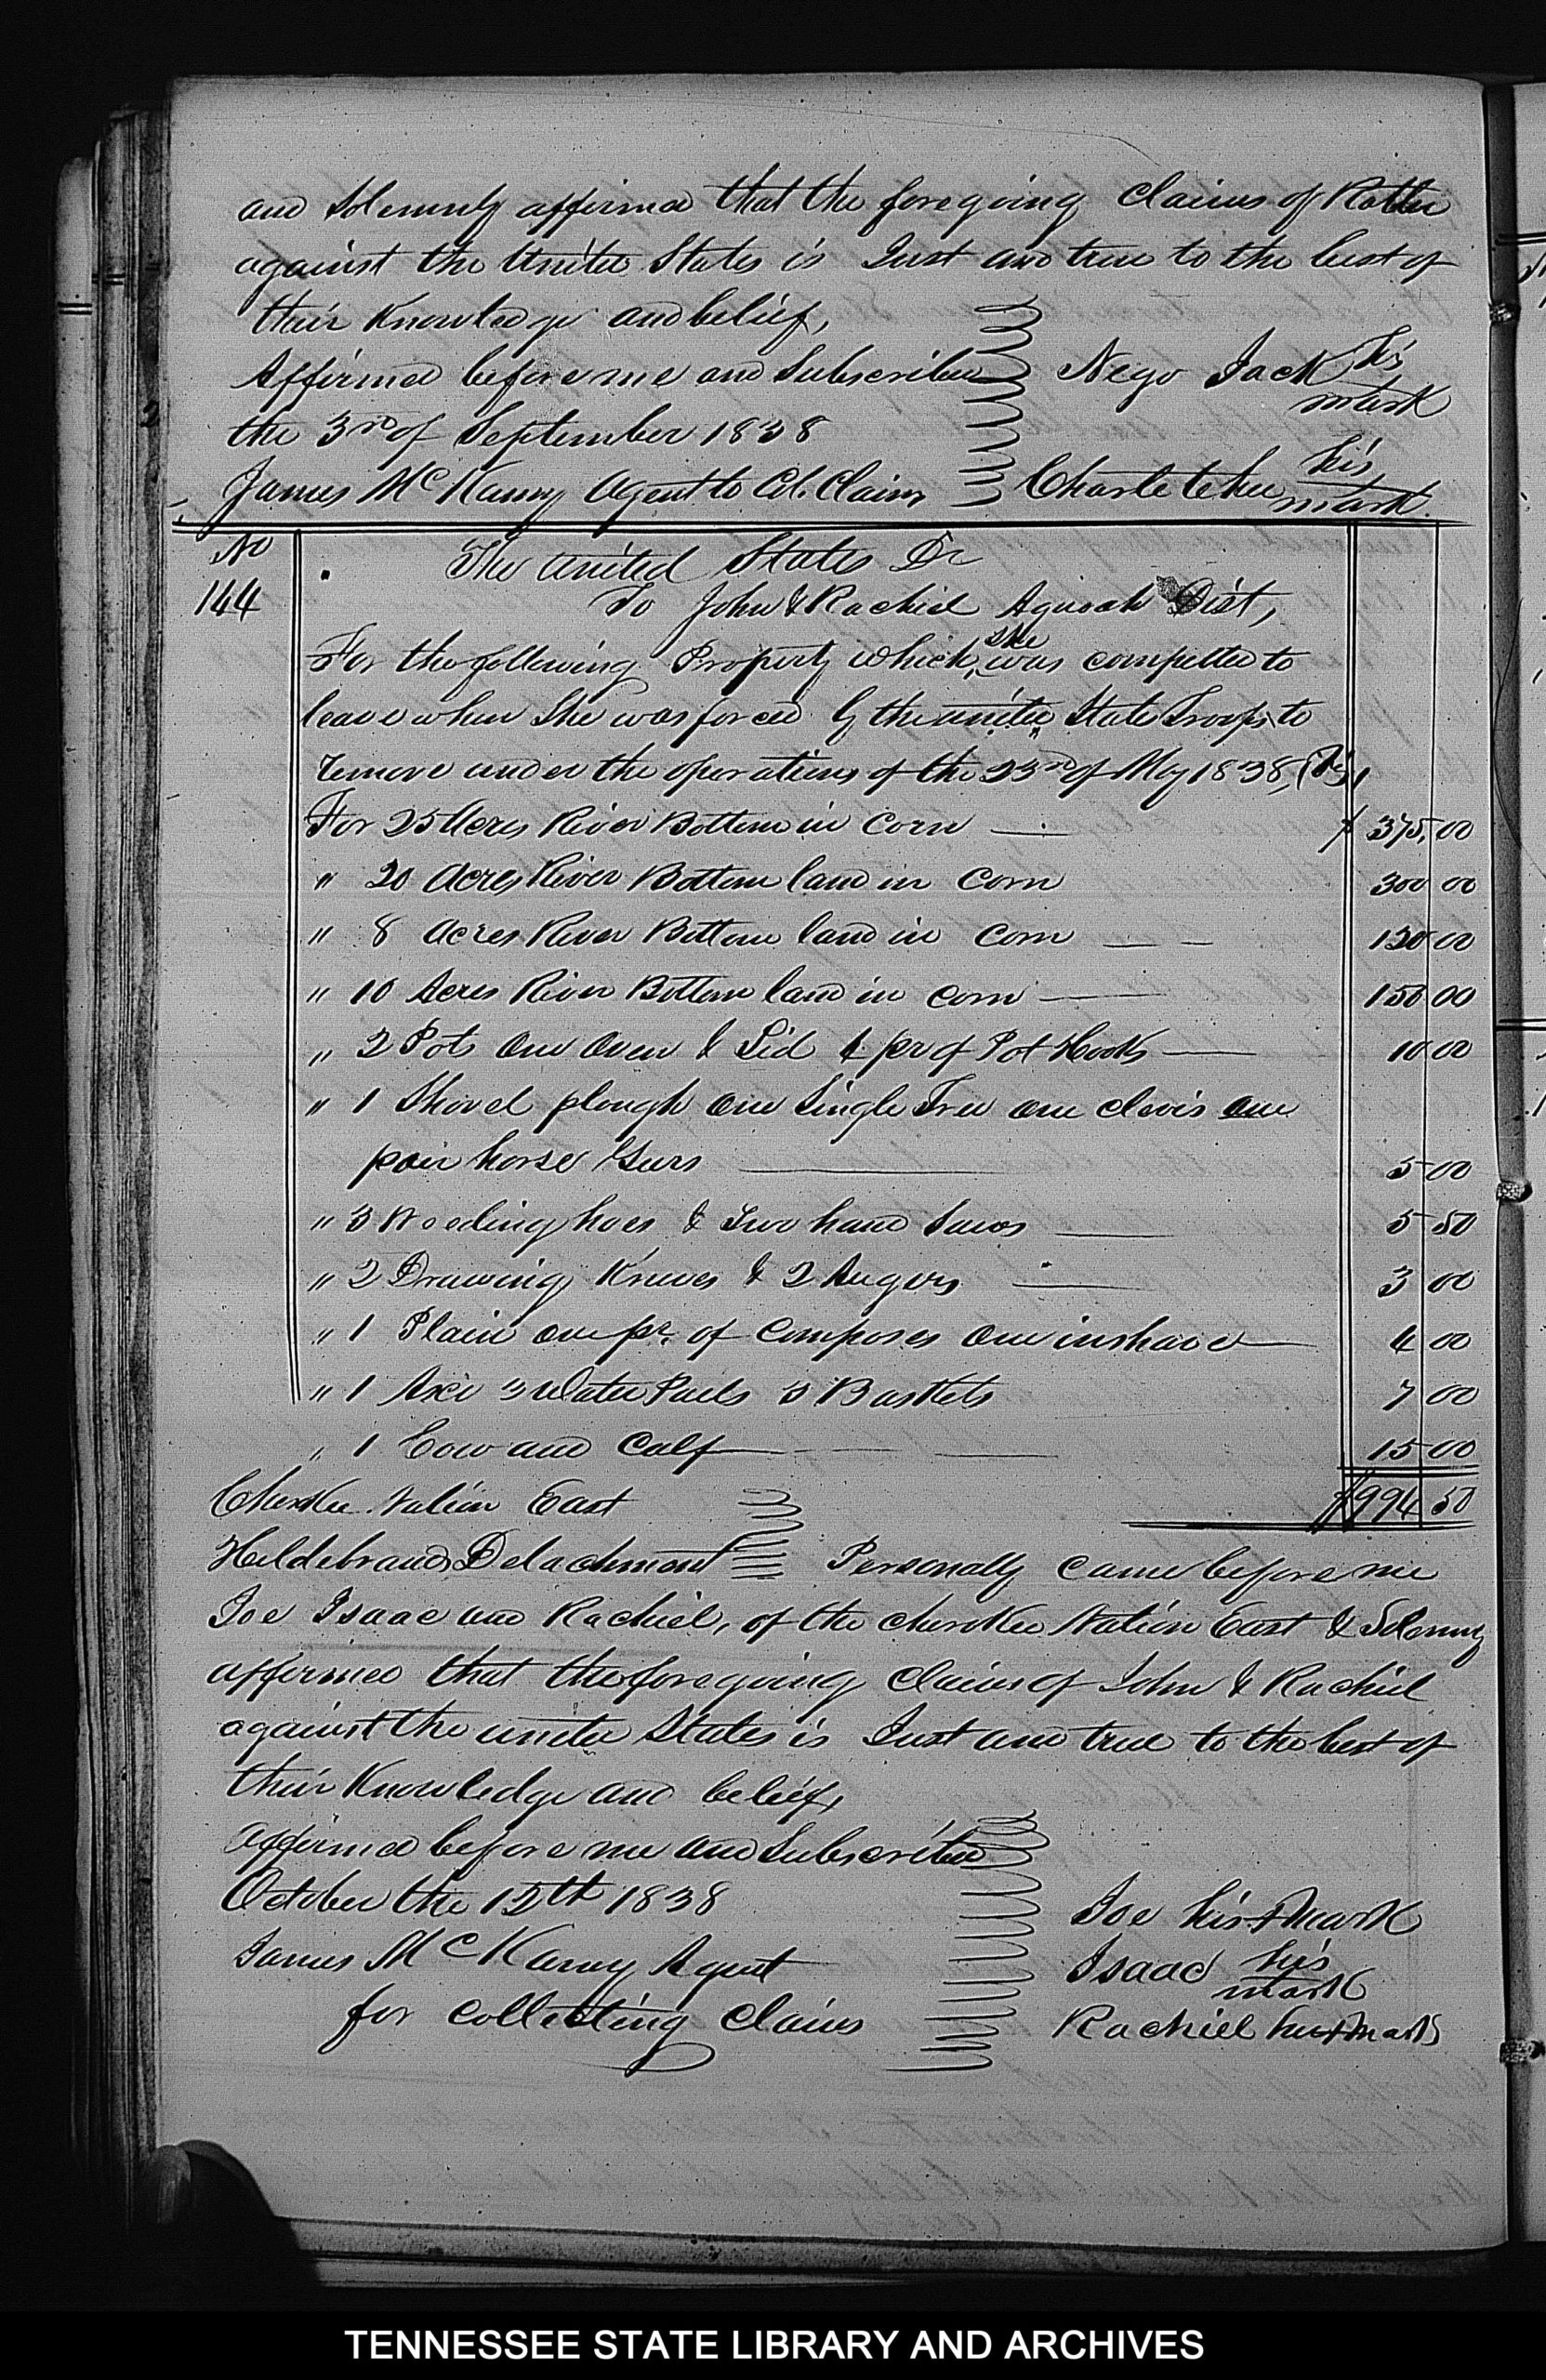 and Solemnly affirmed that the foregoing Claims of
against the United States is Just and true to the best of
their Knowledge and belief,
Affirmed before me and Subscribed Nego Jack his
mark
the 3rd of September 1838
James McKamy Agent to Col. Claims his
mark
No The United States Dr
144 To John & Rachiel Aquoah Dist,
she
For the following Property which was compelled to
leave when She was forced by the united State Troops to
remove under the operations of the 23rd of May 1838, (Viz)
For 25 Acres River Bottom in Corn $ 375,00
" 20 Acres River Bottom land in Corn 300 00
" 8 Acres River Bottom land in Corn 120 00
" 10 Acres River Bottom land in Corn 150 00
" 2 Pots One Oven & Lid 1 pr of Pot Hooks 10 00
" 1 Shovel plough One Single Tree one clevis One
pair horse Gurs 5 00
" 3 Weeding hoes & Two hand Saws 5 50
" 2 Drawing Knives & 2 Augers 3 00
" 1 Plain one pr. of Composes One inshave 4 00
" 1 Axe 3 Water Pails 3 Baskets 7 00
" 1 Cow and Calf 15 00
Cherokee Nation East $994 50
Hildebrands Detachment Personally Came before me
Joe Isaac and Rachiel, of the Cherokee Nation East & Solemnly
affirmed that the foregoing Claims of John & Rachiel
against the united States is Just and true to the best of
their Knowledge and belief,
Affirmed before me and Subscribed
October the 12th 1838 Joe his + mark
James McKamy Agent Isaac his
mark
for Collecting Claims Rachiel her + mark
TENNESSEE STATE LIBRARY AND ARCHIVES